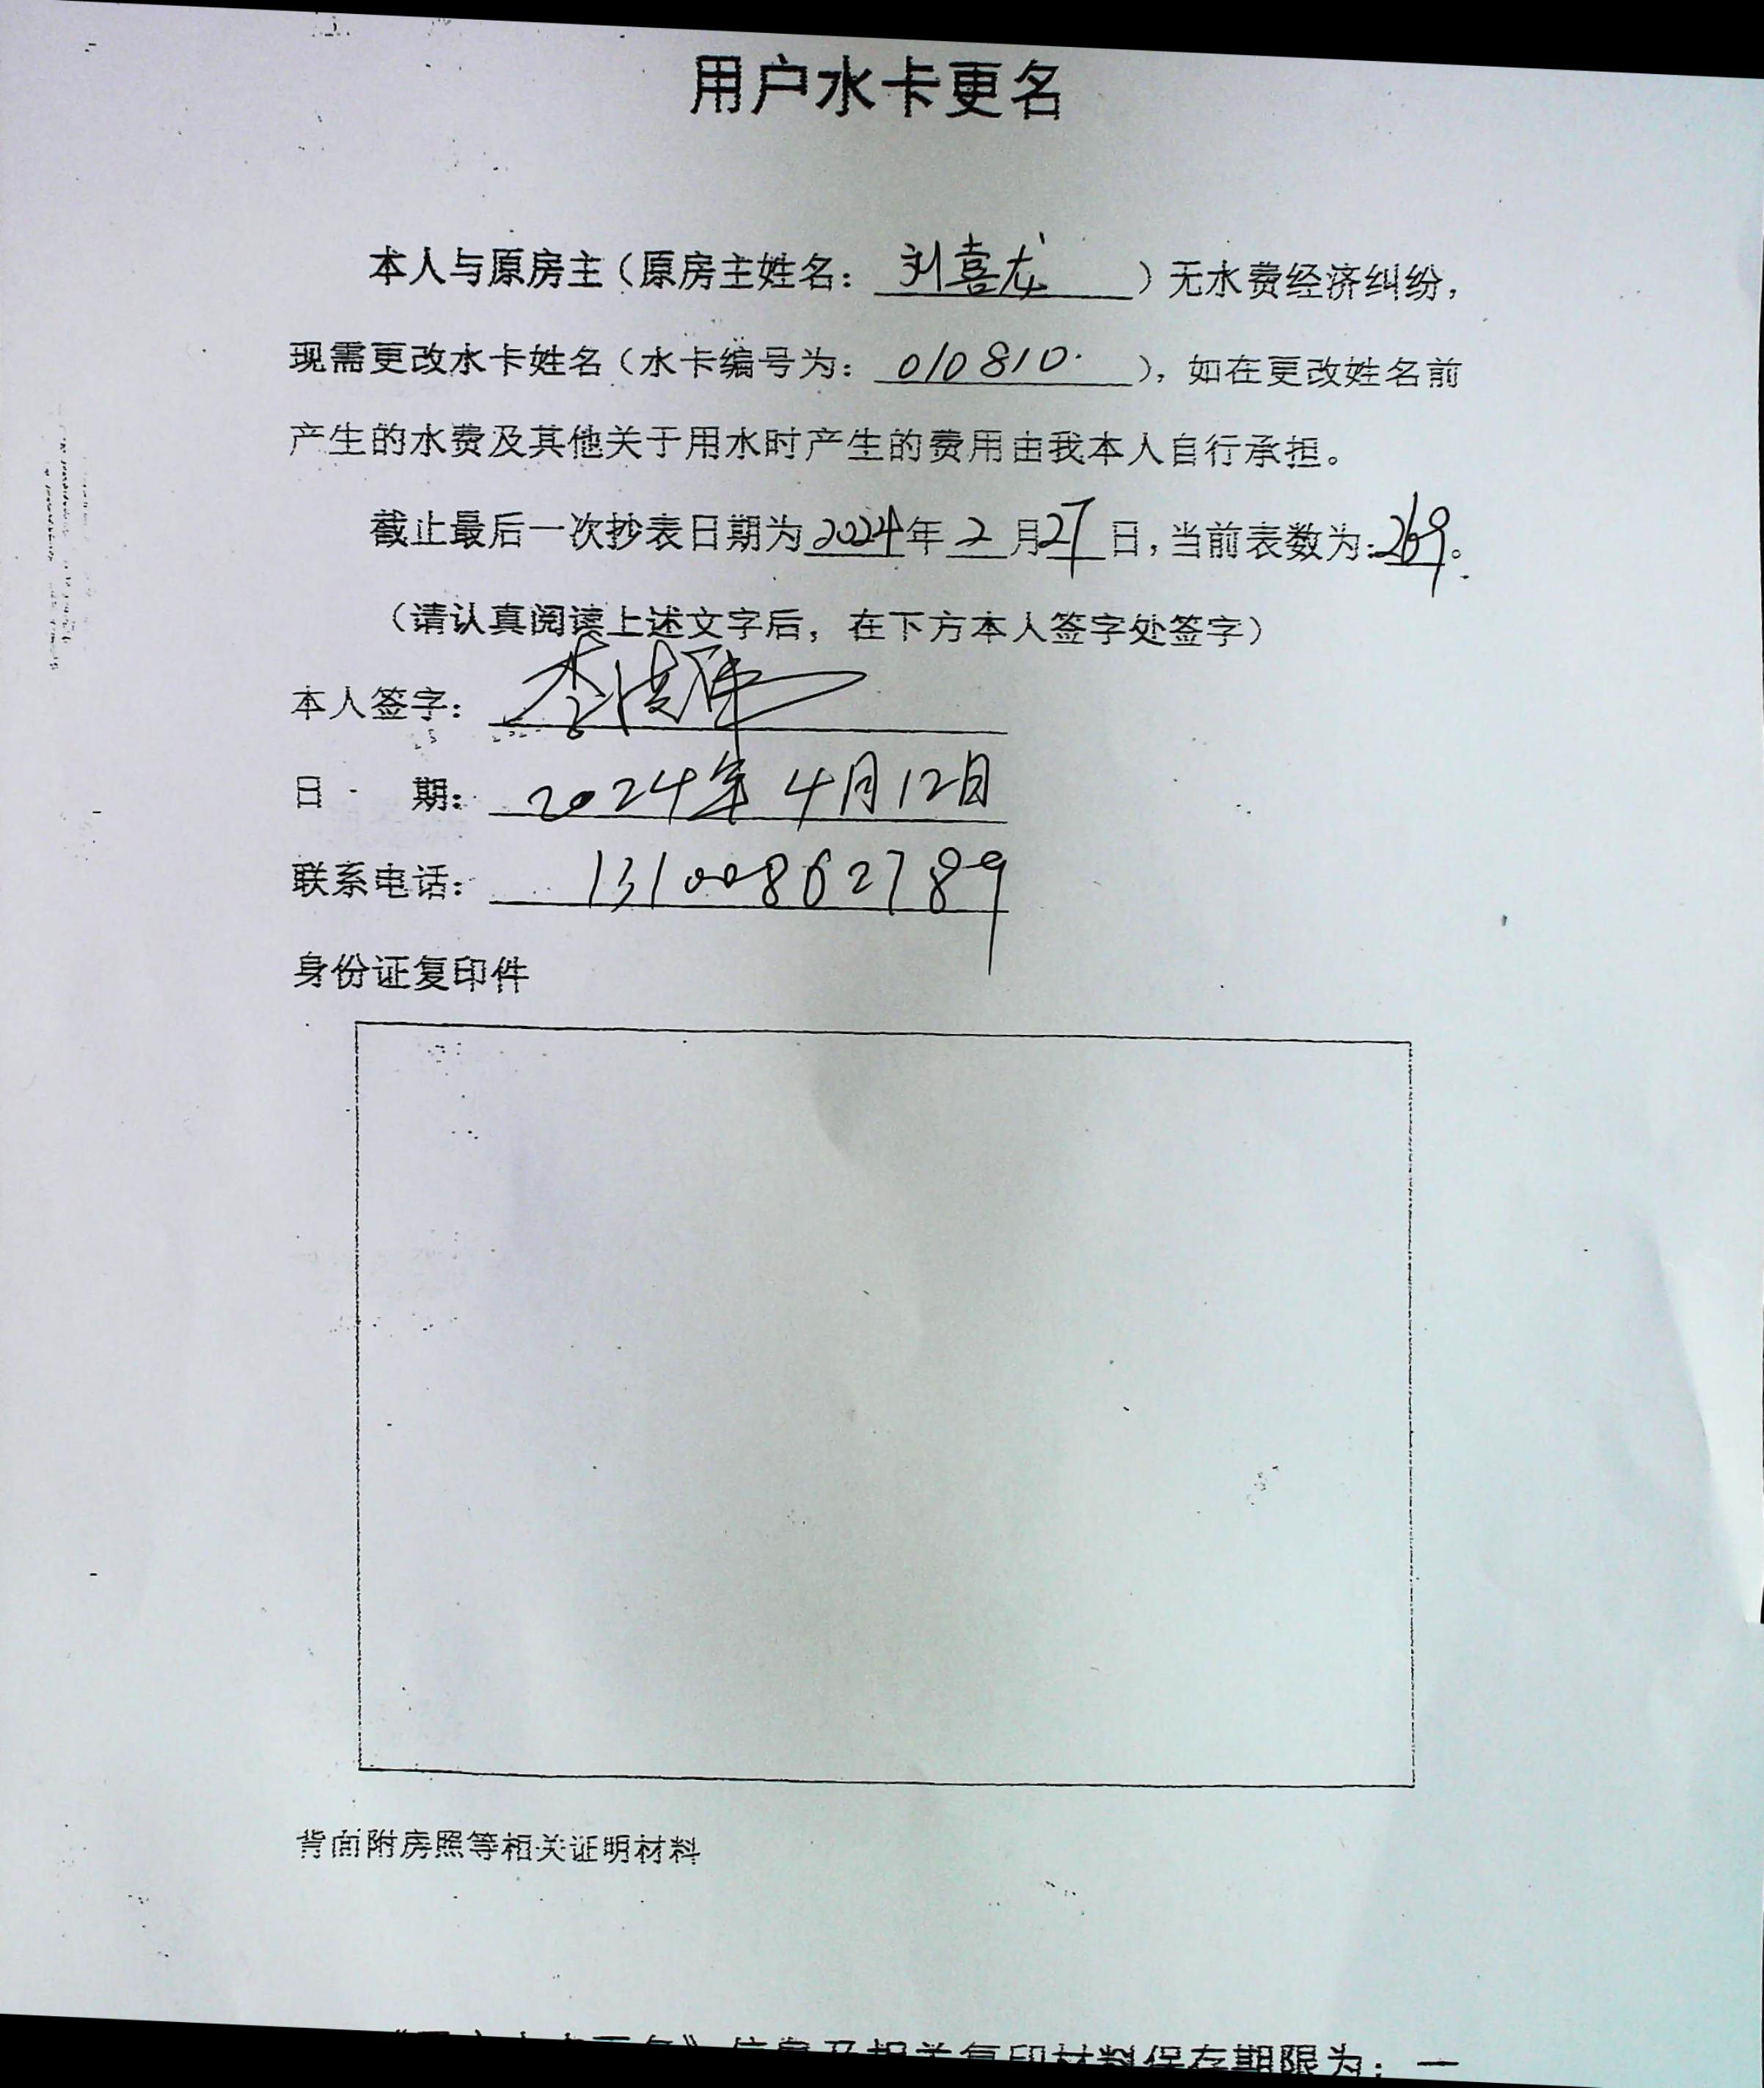 用户水卡更名
本人与原房主（原房主姓名：刘喜龙）无水费经济纠纷，
现需更改水卡姓名（水卡编号为：010810），如在更改姓名前
产生的水费及其他关于用水时产生的费用由我本人自行承担。
截止最后一次抄表日期为2024年2月27日，当前表数为：269。
（请认真阅读上述文字后，在下方本人签字处签字）
本人签字：李
日期：2024年4月12日
联系电话：13100862789
身份证复印件
背面附房照等相关证明材料
信息及相关复印材料保存期限为：一